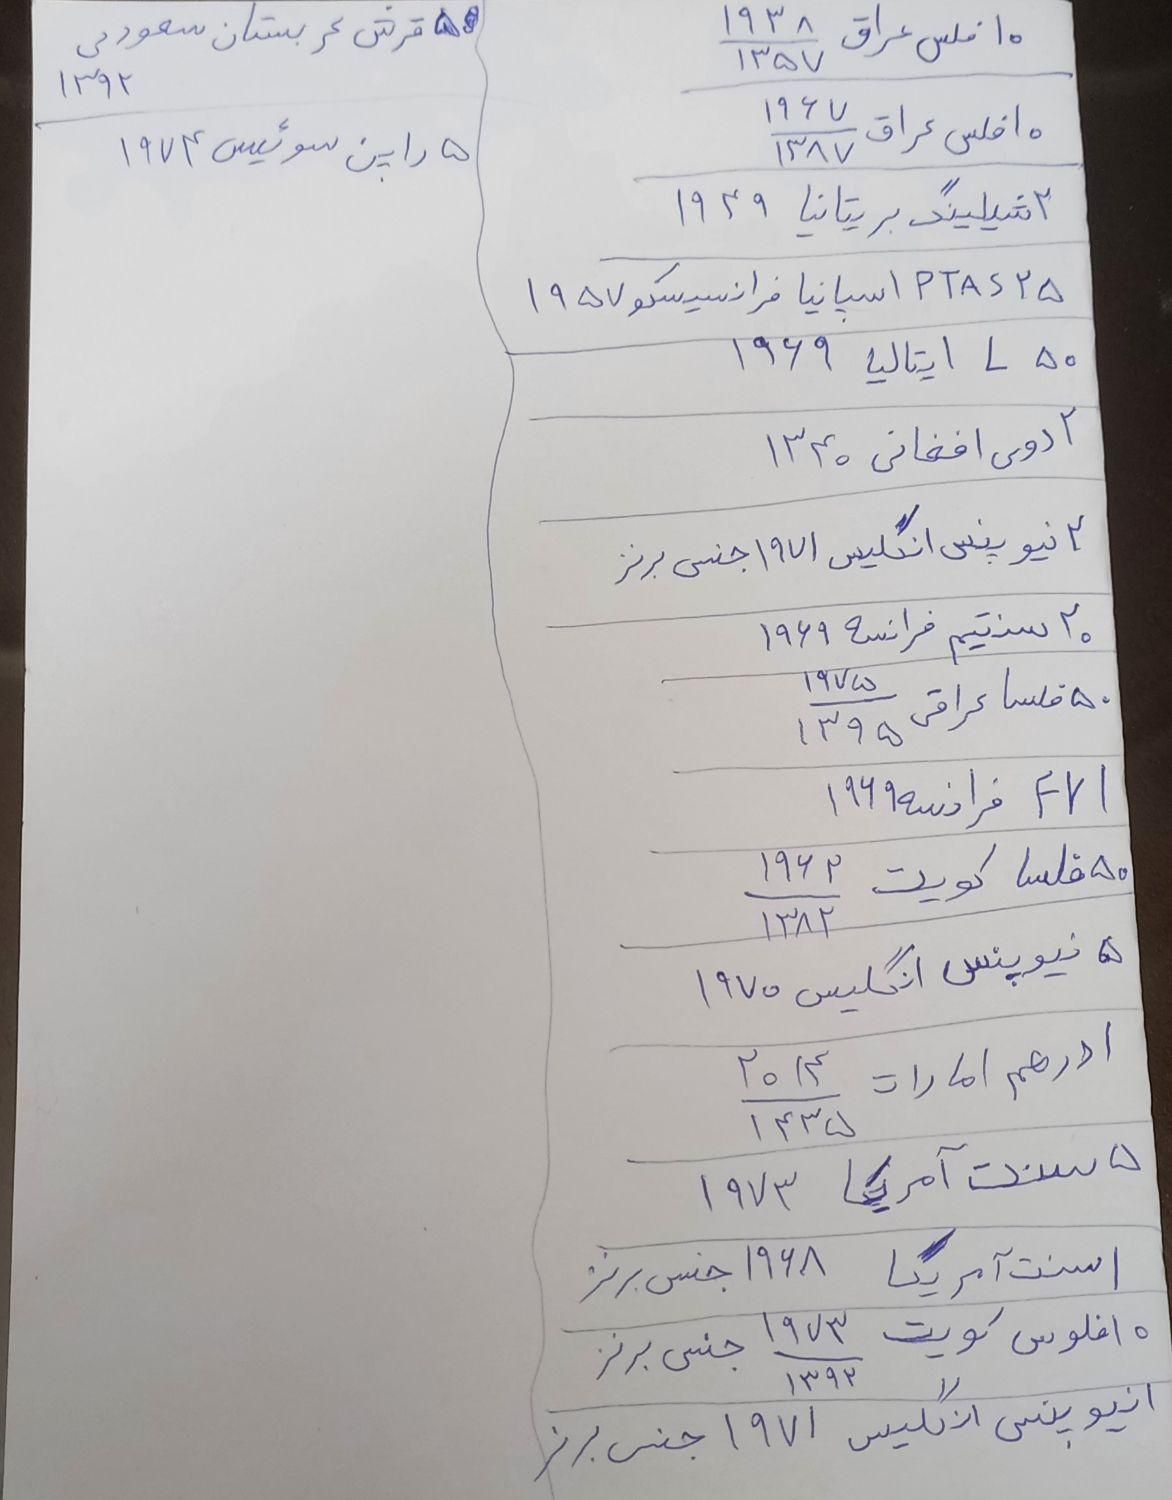 ۱۰ فلس عراق ۱۹۳۸
۱۳۵۷
۱۰ فلس عراق ۱۹۶۷
۱۳۸۷
۲ شیلینگ بریتانیا ۱۹۴۹
۲۵ PTAS اسپانیا فرانسیسکو ۱۹۵۷
۵۰ L ایتالیا ۱۹۶۹
۲ دوی افغانی ۱۳۴۰
۲ نیو پنس انگلیس ۱۹۷۱ جنس برنز
۲۰ سنتیم فرانسه ۱۹۶۹
۵۰ فلسا عراقی ۱۹۷۵
۱۳۹۵
فرانسه ۱۹۶۹
۵۰ فلسا کویت ۱۹۶۲
۱۳۸۲
۵ نیو پنس انگلیس ۱۹۷۰
۱ درهم امارات ۲۰۱۴
۱۴۳۵
۵ سنت آمریکا ۱۹۷۳
۱ سنت آمریکا ۱۹۶۸ جنس برنز
۱۰ فلوس کویت ۱۹۷۳ جنس برنز
۱۳۹۲
۱ نیو پنس انگلیس ۱۹۷۱ جنس برنز
قرش عربستان سعودی
۱۳۹۲
۵ راپن سوئیس ۱۹۷۴